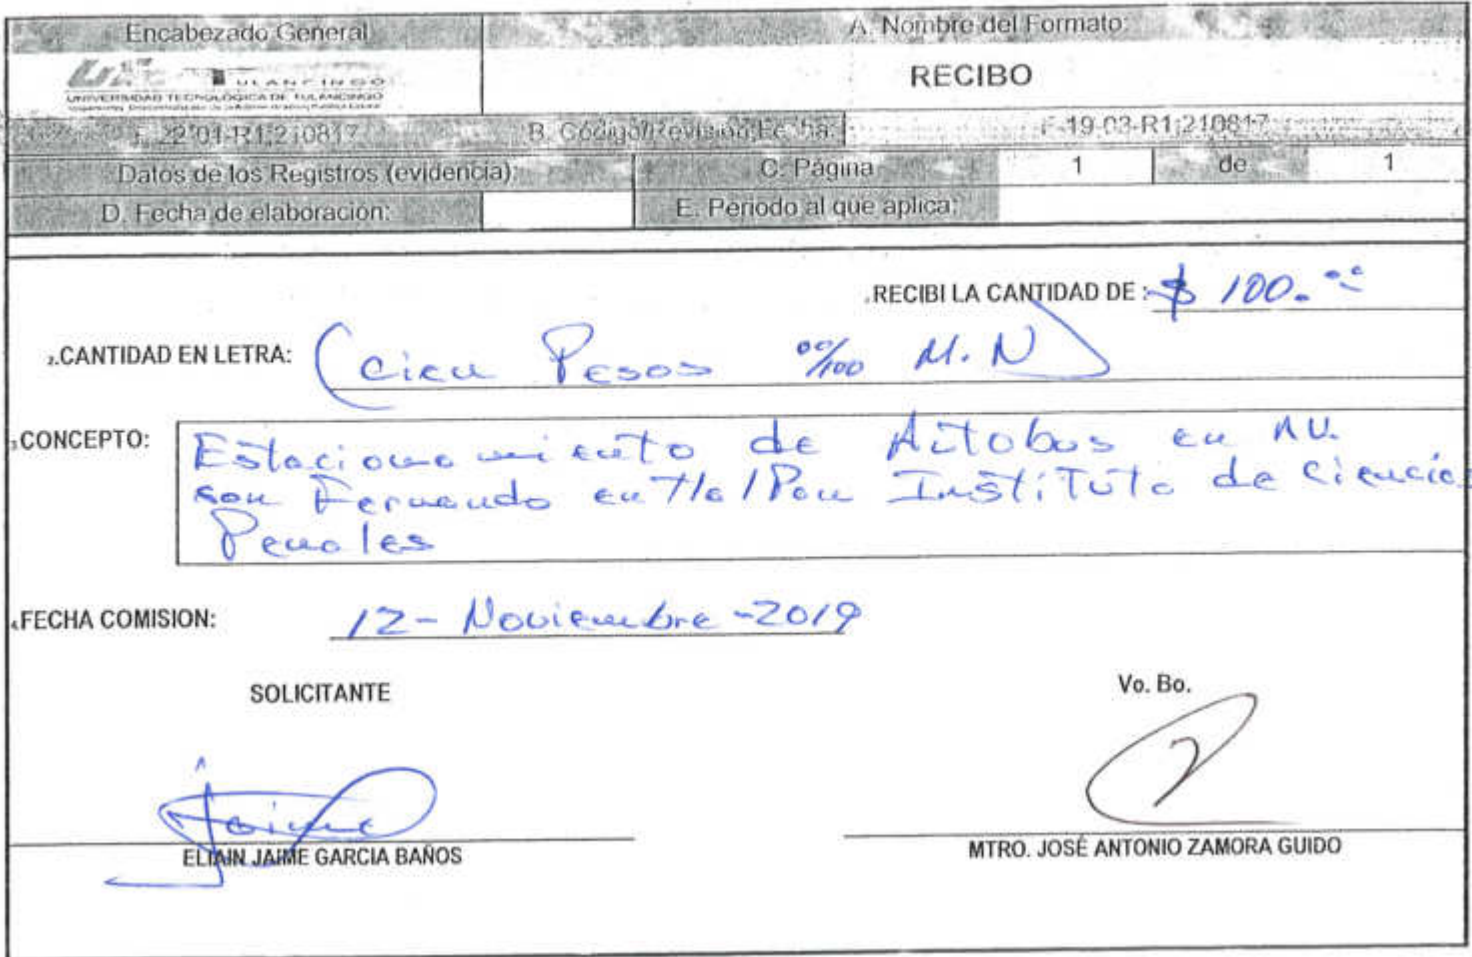 Encabezado General
A. Nombre del Formato:
TULANCINGO
UNIVERSIDAD TECNOLÓGICA DE TULANCINGO
RECIBO
F-22-01-R1;210817
B. Código/Revisión;Fecha:
F-19-03-R1;210817
Datos de los Registros (evidencia):
C. Página
1
de
1
D. Fecha de elaboración:
E. Periodo al que aplica:
.RECIBI LA CANTIDAD DE : $ 100.00
2.CANTIDAD EN LETRA: (cien Pesos 00/100 M.N)
3.CONCEPTO: Estacionamiento de Autobus en AV.
san Fernando en Tlalpan Instituto de Ciencias
Penales
4.FECHA COMISION: 12-Noviembre-2019
SOLICITANTE
Vo. Bo.
Jaime
ELIAIN JAIME GARCIA BAÑOS
MTRO. JOSÉ ANTONIO ZAMORA GUIDO